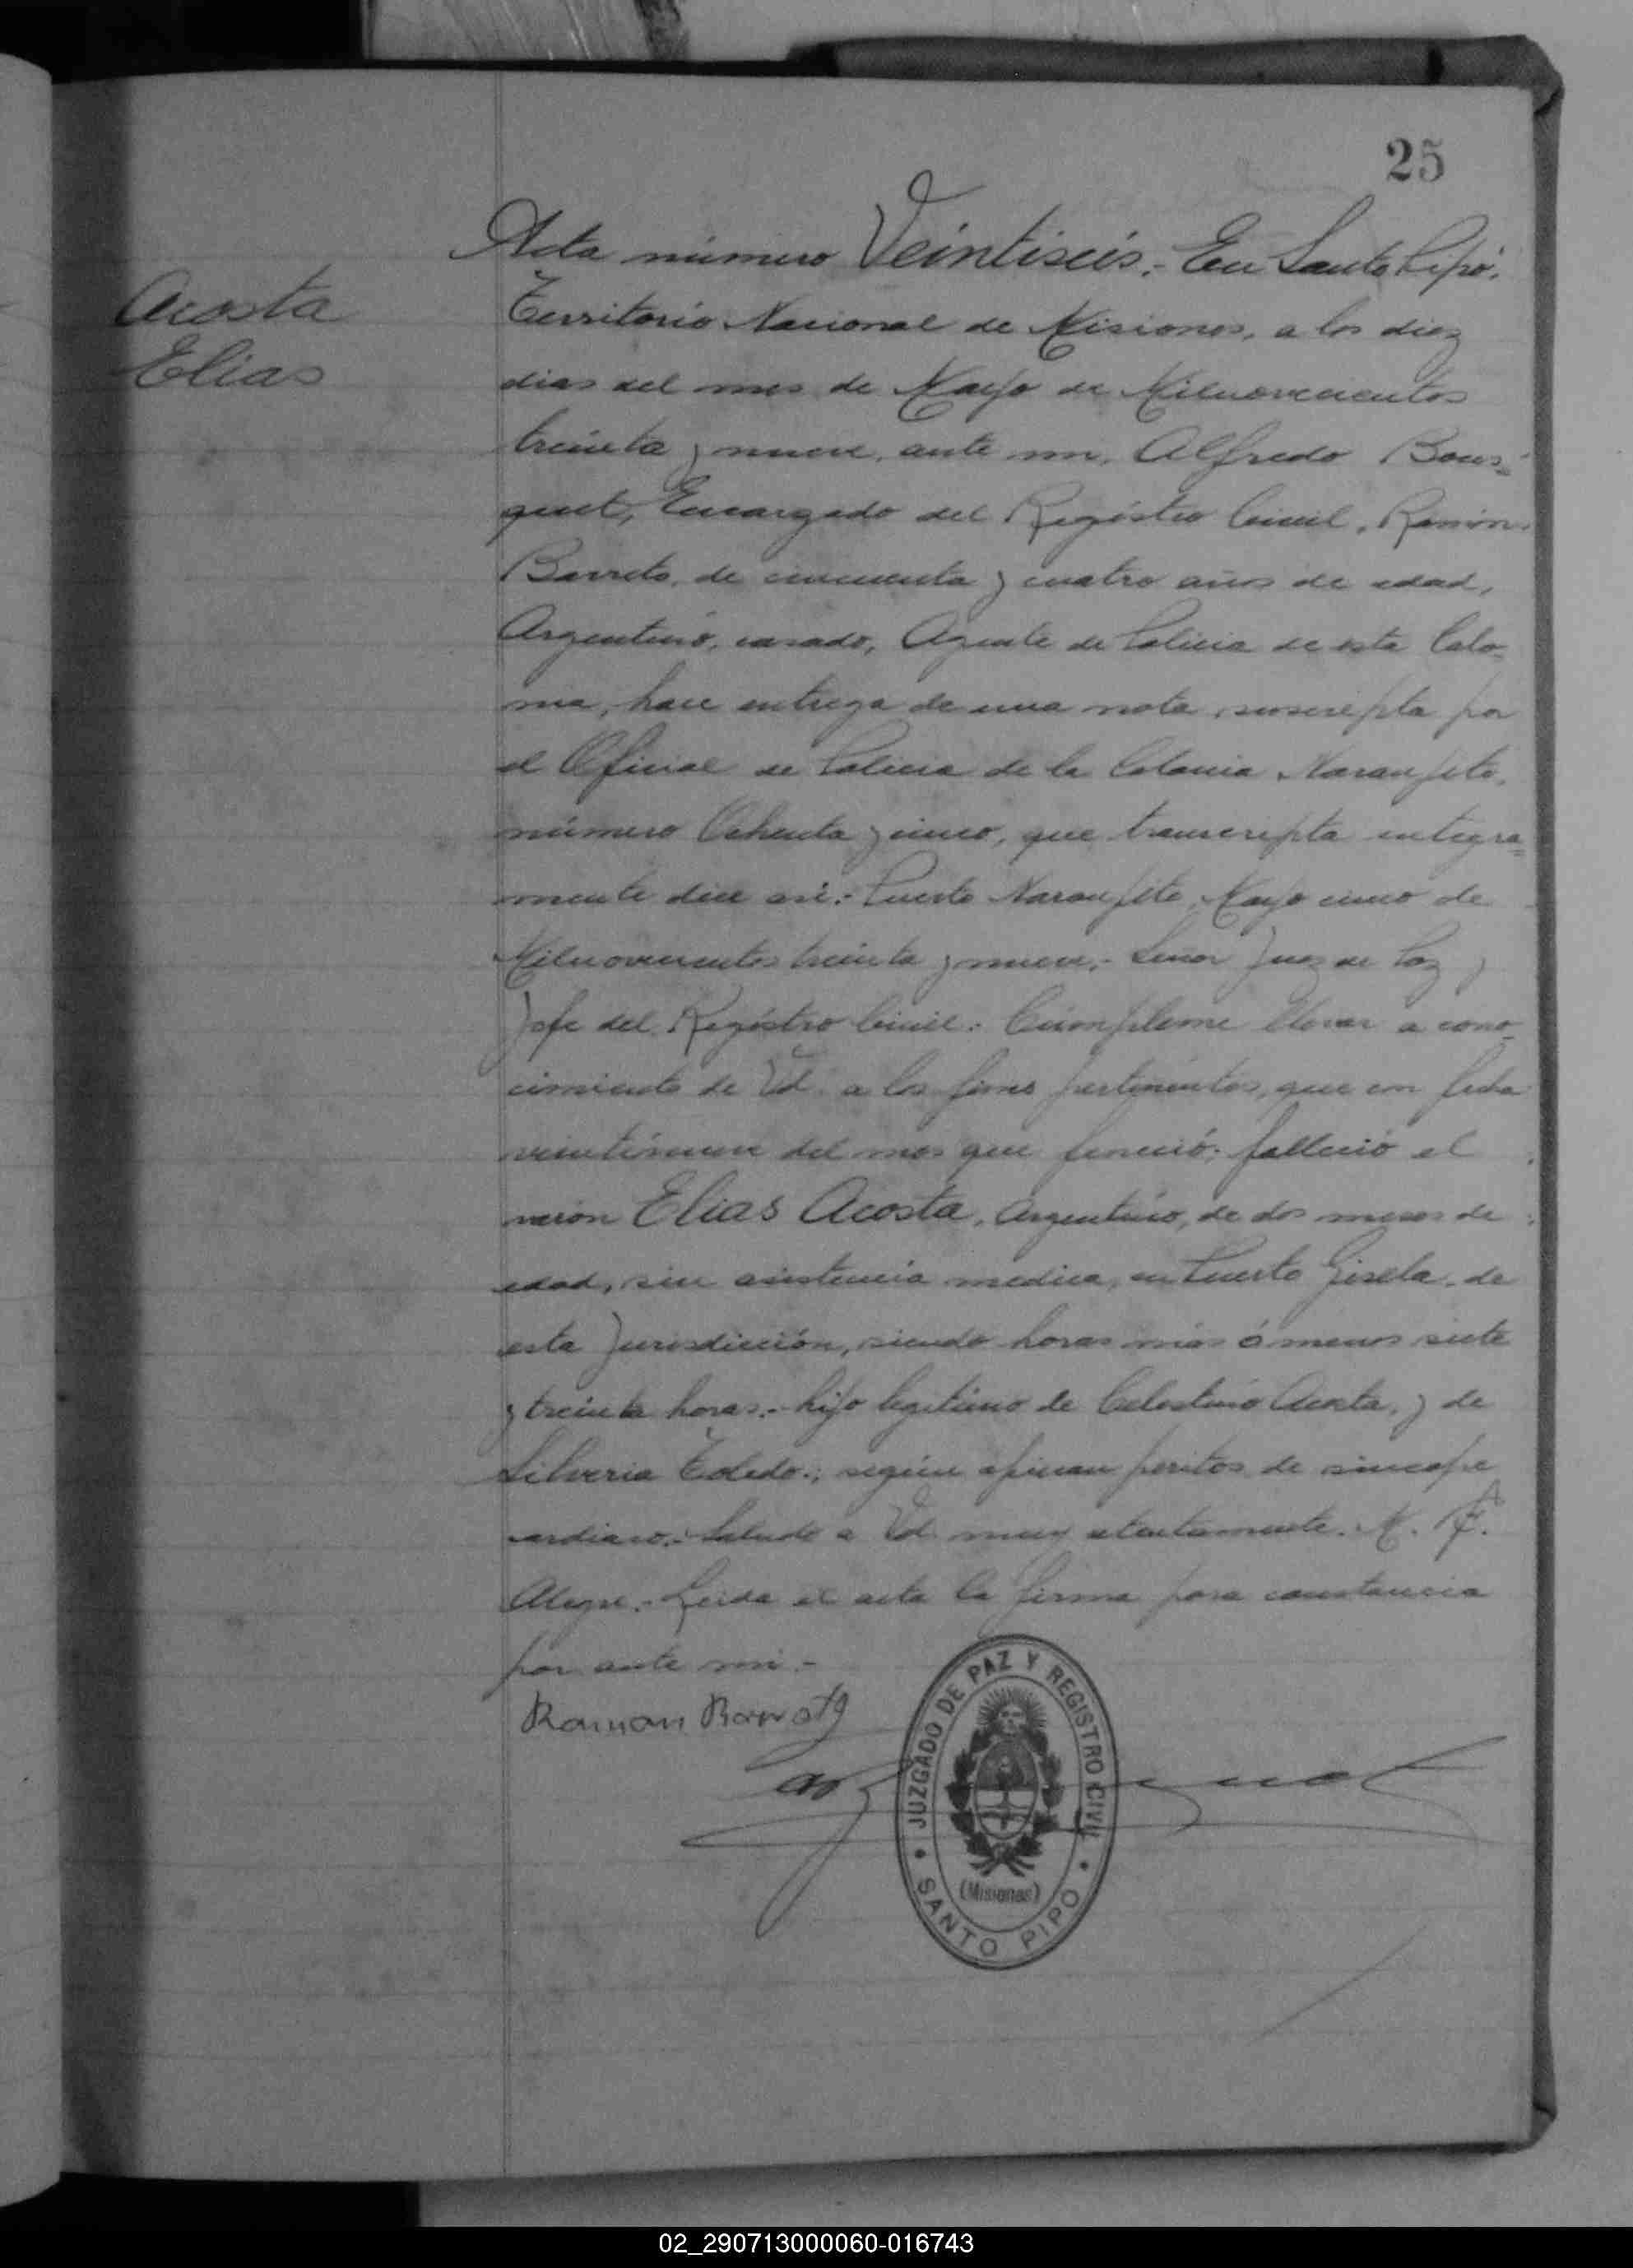 25
Acosta
Elias
Acta número Veintiseis.- En Santo Pipó.
Territorio Nacional de Misiones, a los diez
dias del mes de Mayo de Milnovecientos
treinta y nueve, ante mi, Alfredo Bous=
quet, Encargado del Registro Civil, Ramón
Barreto, de cincuenta y cuatro años de edad,
Argentino, casado, Agente de Policia de esta Colo-
nia, hace entrega de una nota, suscripta por
el Oficial de Policia de la Colonia Naranjito,
número Ochenta y cinco, que transcripta integra=
mente dice asi:- Puerto Naranjito, Mayo cinco de
Milnovecientos treinta y nueve.- Señor Juez de Paz y
Jefe del Registro Civil: Cúmpleme llevar a cono-
cimiento de Vd. a los fines pertinentes, que con fecha
veintinueve del mes que feneció; falleció el
varón Elias Acosta, Argentino, de dos meses de
edad, sin asistencia medica, en Puerto Gisela, de
esta Jurisdicción, siendo horas más ó menos siete
y treinta horas.- hijo legitimo de Celestino Acosta, y de
Silveria Toledo.; según opinan peritos de sincope
cardiaco.- Saludo a Vd. muy atentamente. M.
Alegre.- Leida el acta la firma para constancia
por ante mi.-
Raman Barreto
JUZGADO DE PAZ Y REGISTRO CIVIL
(Misiones)
SANTO PIPO
02_290713000060-016743